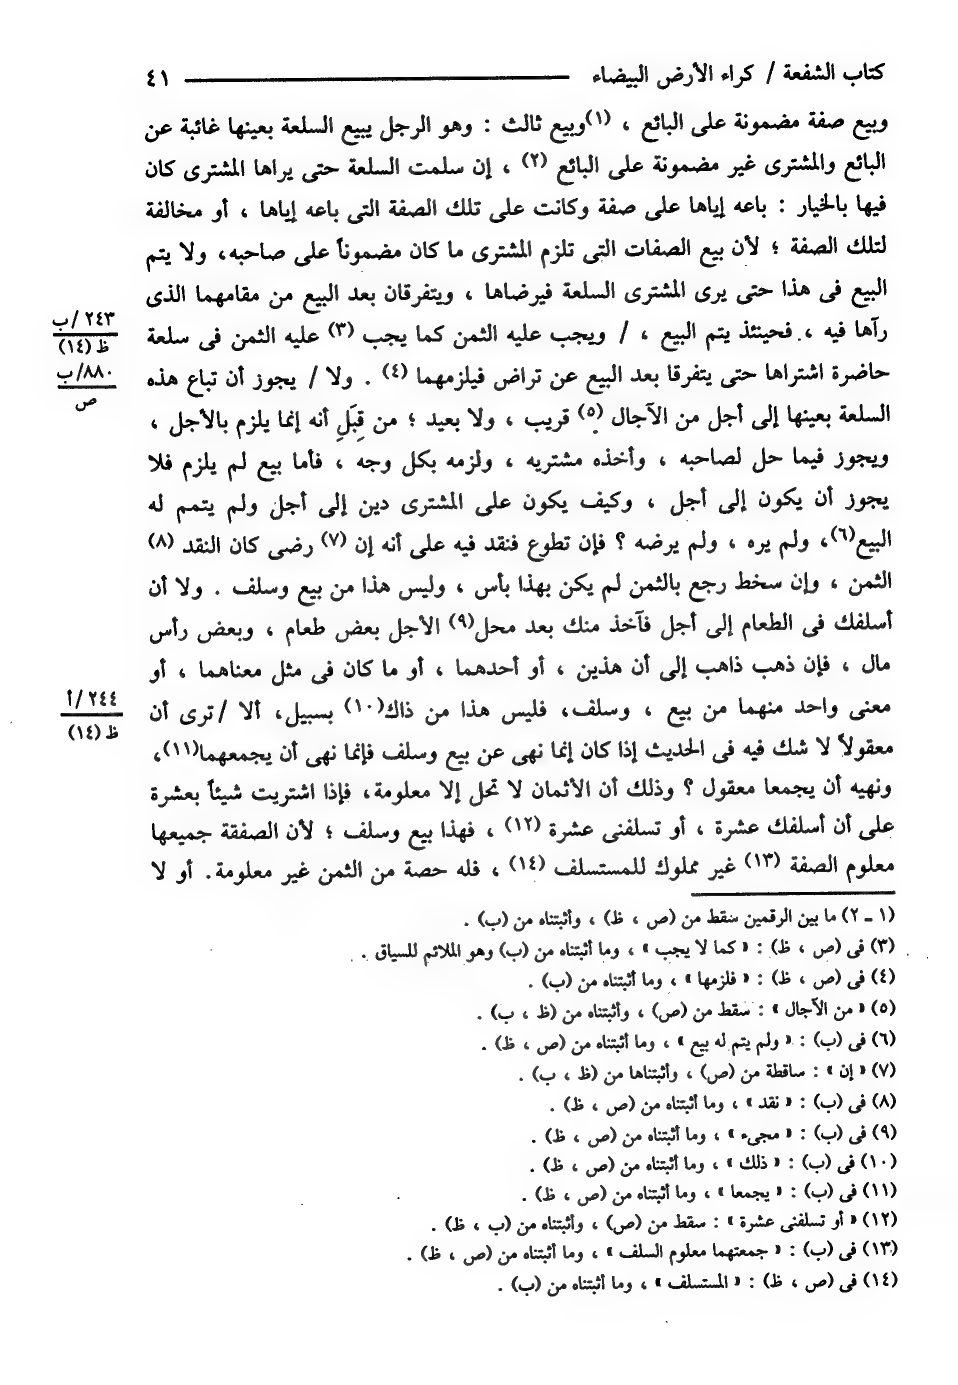 كتاب الشفعة / كراء الأرض البيضاء ٤١
وبيع صفة مضمونة على البائع ، (١)وبيع ثالث : وهو الرجل يبيع السلعة بعينها غائبة عن
البائع والمشترى غير مضمونة على البائع (٢) ، إن سلمت السلعة حتى يراها المشترى كان
فيها بالخيار : باعه إياها على صفة وكانت على تلك الصفة التى باعه إياها ، أو مخالفة
لتلك الصفة ؛ لأن بيع الصفات التى تلزم المشترى ما كان مضموناً على صاحبه، ولا يتم
البيع فى هذا حتى يرى المشترى السلعة فيرضاها ، ويتفرقان بعد البيع من مقامهما الذى
رآها فيه ، فحينئذ يتم البيع ، / ويجب عليه الثمن كما يجب (٣) عليه الثمن فى سلعة
٢٤٣ /ب
ظ (١٤)
حاضرة اشتراها حتى يتفرقا بعد البيع عن تراض فيلزمهما (٤) . ولا / يجوز أن تباع هذه
٨٨٠/ ب
ص
السلعة بعينها إلى أجل من الآجال (٥) قريب ، ولا بعيد ؛ من قِبَلِ أنه إنما يلزم بالأجل ،
ويجوز فيما حل لصاحبه ، وأخذه مشتريه ، ولزمه بكل وجه ، فأما بيع لم يلزم فلا
يجوز أن يكون إلى أجل ، وكيف يكون على المشترى دين إلى أجل ولم يتمم له
البيع(٦)، ولم يره ، ولم يرضه ؟ فإن تطوع فنقد فيه على أنه إن (٧) رضى كان النقد (٨)
الثمن ، وإن سخط رجع بالثمن لم يكن بهذا بأس ، وليس هذا من بيع وسلف . ولا أن
أسلفك فى الطعام إلى أجل فآخذ منك بعد محل(٩) الأجل بعض طعام ، وبعض رأس
مال ، فإن ذهب ذاهب إلى أن هذين ، أو أحدهما ، أو ما كان فى مثل معناهما ، أو
معنى واحد منهما من بيع ، وسلف، فليس هذا من ذاك(١٠) بسبيل، ألا /ترى أن
٢٤٤ /أ
ظ (١٤)
معقولاً لا شك فيه فى الحديث إذا كان إنما نهى عن بيع وسلف فإنما نهى أن يجمعهما(١١)،
ونهيه أن يجمعا معقول ؟ وذلك أن الأثمان لا تحل إلا معلومة، فإذا اشتريت شيئاً بعشرة
على أن أسلفك عشرة ، أو تسلفنى عشرة (١٢) ، فهذا بيع وسلف ؛ لأن الصفقة جميعها
معلوم الصفة (١٣) غير مملوك للمستسلف (١٤) ، فله حصة من الثمن غير معلومة. أو لا
(١ ـ ٢) ما بين الرقمين سقط من (ص ، ظ) ، وأثبتناه من (ب) .
(٣) فى (ص ، ظ) : « كما لا يجب » ، وما أثبتناه من (ب) وهو الملائم للسياق .
(٤) فى (ص ، ظ) : « فلزمها » ، وما أثبتناه من (ب) .
(٥) « من الآجال » : سقط من (ص) ، وأثبتناه من (ظ ، ب) .
(٦) فى (ب) : « ولم يتم له بيع » ، وما أثبتناه من (ص ، ظ) .
(٧) « إن » : ساقطة من (ص) ، وأثبتناها من (ظ ، ب) .
(٨) فى (ب) : « نقد » ، وما أثبتناه من (ص ، ظ) .
(٩) فى (ب) : « مجىء » ، وما أثبتناه من (ص ، ظ) .
(١٠) فى (ب) : « ذلك » ، وما أثبتناه من (ص ، ظ) .
(١١) فى (ب) : « يجمعا » ، وما أثبتناه من (ص ، ظ) .
(١٢) « أو تسلفنى عشرة » : سقط من (ص) ، وأثبتناه من (ب ، ظ) .
(١٣) فى (ب) : « جمعتهما معلوم السلف » ، وما أثبتناه من (ص ، ظ) .
(١٤) فى (ص ، ظ) : « المستسلف » ، وما أثبتناه من (ب) .